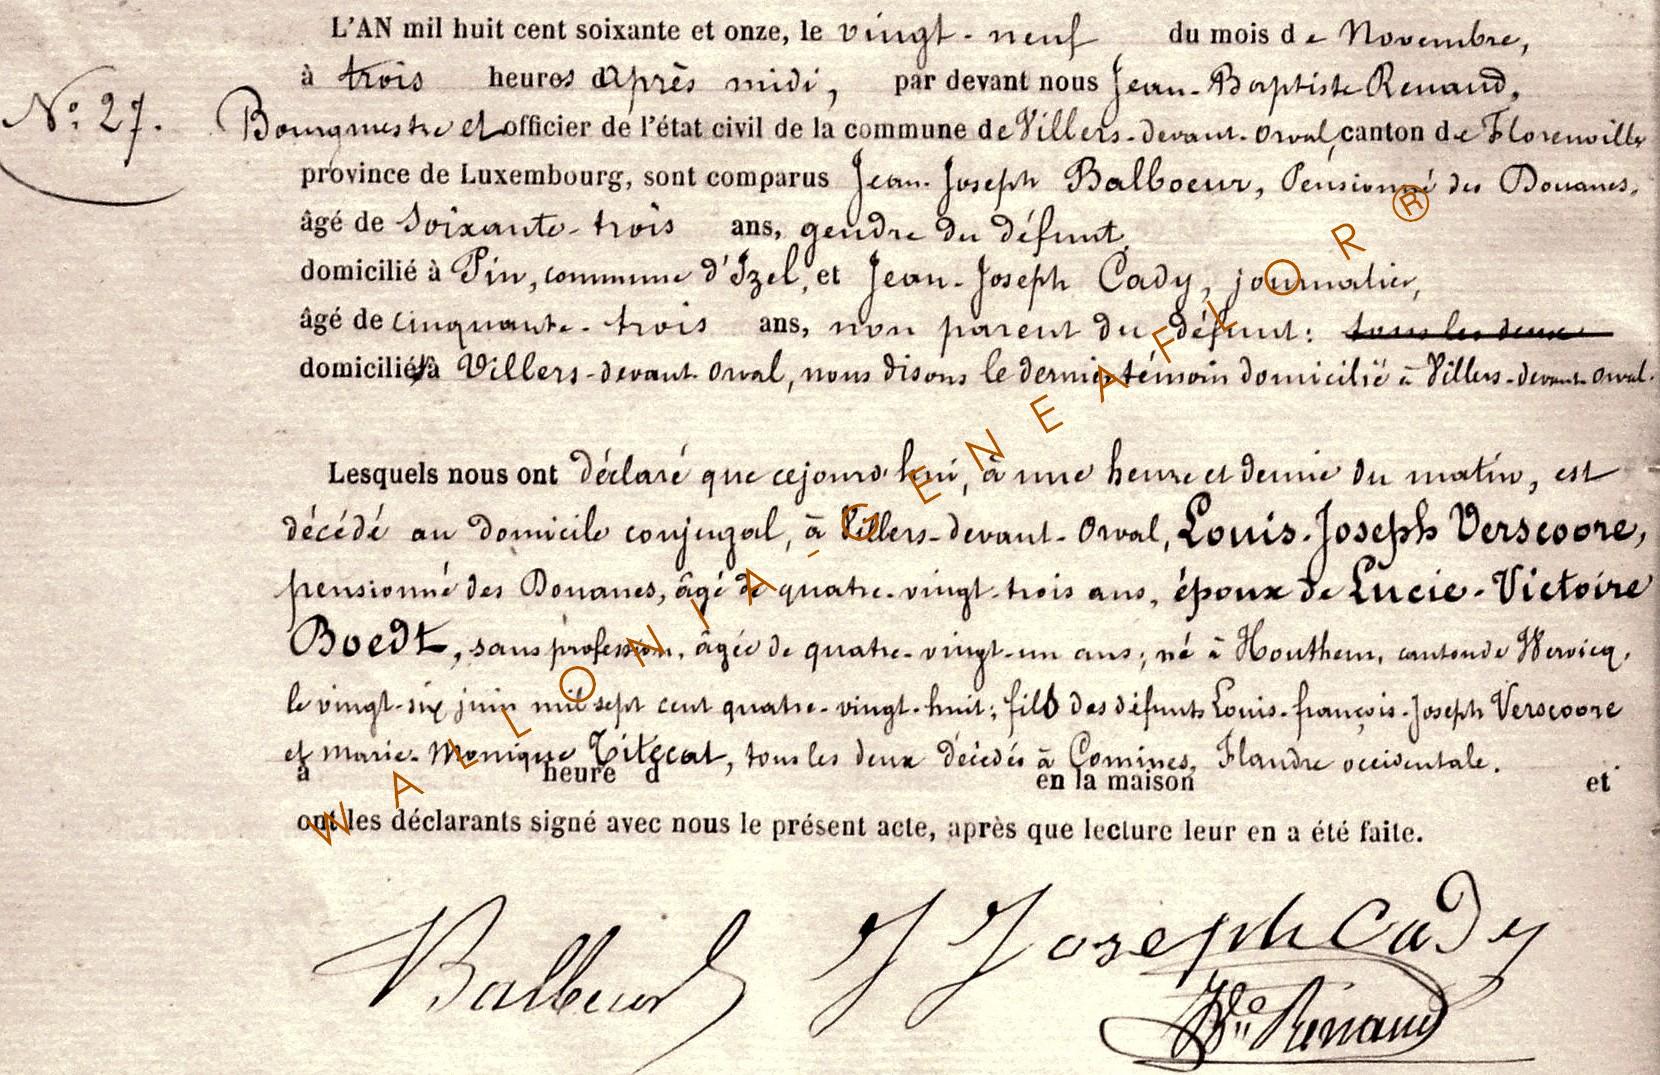 L'AN mil huit cent soixante et onze, le vingt-neuf du mois de Novembre,
à trois heures d'après midi, par devant nous Jean-Baptiste Renaud,
N° 27.
Bourgmestre et officier de l'état civil de la commune de Villers-devant-Orval, canton de Florenville
province de Luxembourg, sont comparus Jean-Joseph Balboeur, Pensionné des Douanes,
âgé de Soixante-trois ans, gendre du défunt,
domicilié à Pin, commune d'Izel, et Jean-Joseph Cady, journalier,
âgé de cinquante-trois ans, non parent du défunt: tous les deux
domiciliés à Villers-devant-Orval, nous disons le dernier témoin domicilié à Villers-devant-Orval.
Lesquels nous ont déclaré que cejourd'hui, à une heure et demie du matin, est
décédé au domicile conjugal, à Villers-devant-Orval, Louis-Joseph Verscoore,
pensionné des Douanes, âgé de quatre-vingt-trois ans, époux de Lucie-Victoire
Boedt, sans profession, âgée de quatre-vingt-un ans; né à Houthem, canton de Wervicq,
le vingt-six juin mil sept cent quatre-vingt-huit; fils des défunts Louis-françois-Joseph Verscoore
et marie-Monique Titécat, tous les deux décédés à Comines, Flandre occidentale.
à heure d en la maison et
ont les déclarants signé avec nous le présent acte, après que lecture leur en a été faite.
Balboeur J Joseph Cady
Bte Renaud
WALLONIA-GENEAFLOR®